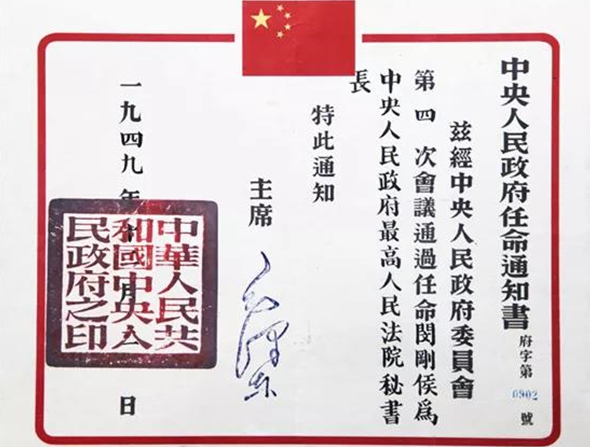 中央人民政府任命通知書
府字第0902號
茲經中央人民政府委員會
第四次會議通過任命閔剛侯爲
中央人民政府最高人民法院秘書
長
特此通知
主席
毛澤东
一九四九年十月 日
中華人民共
和國中央人
民政府之印